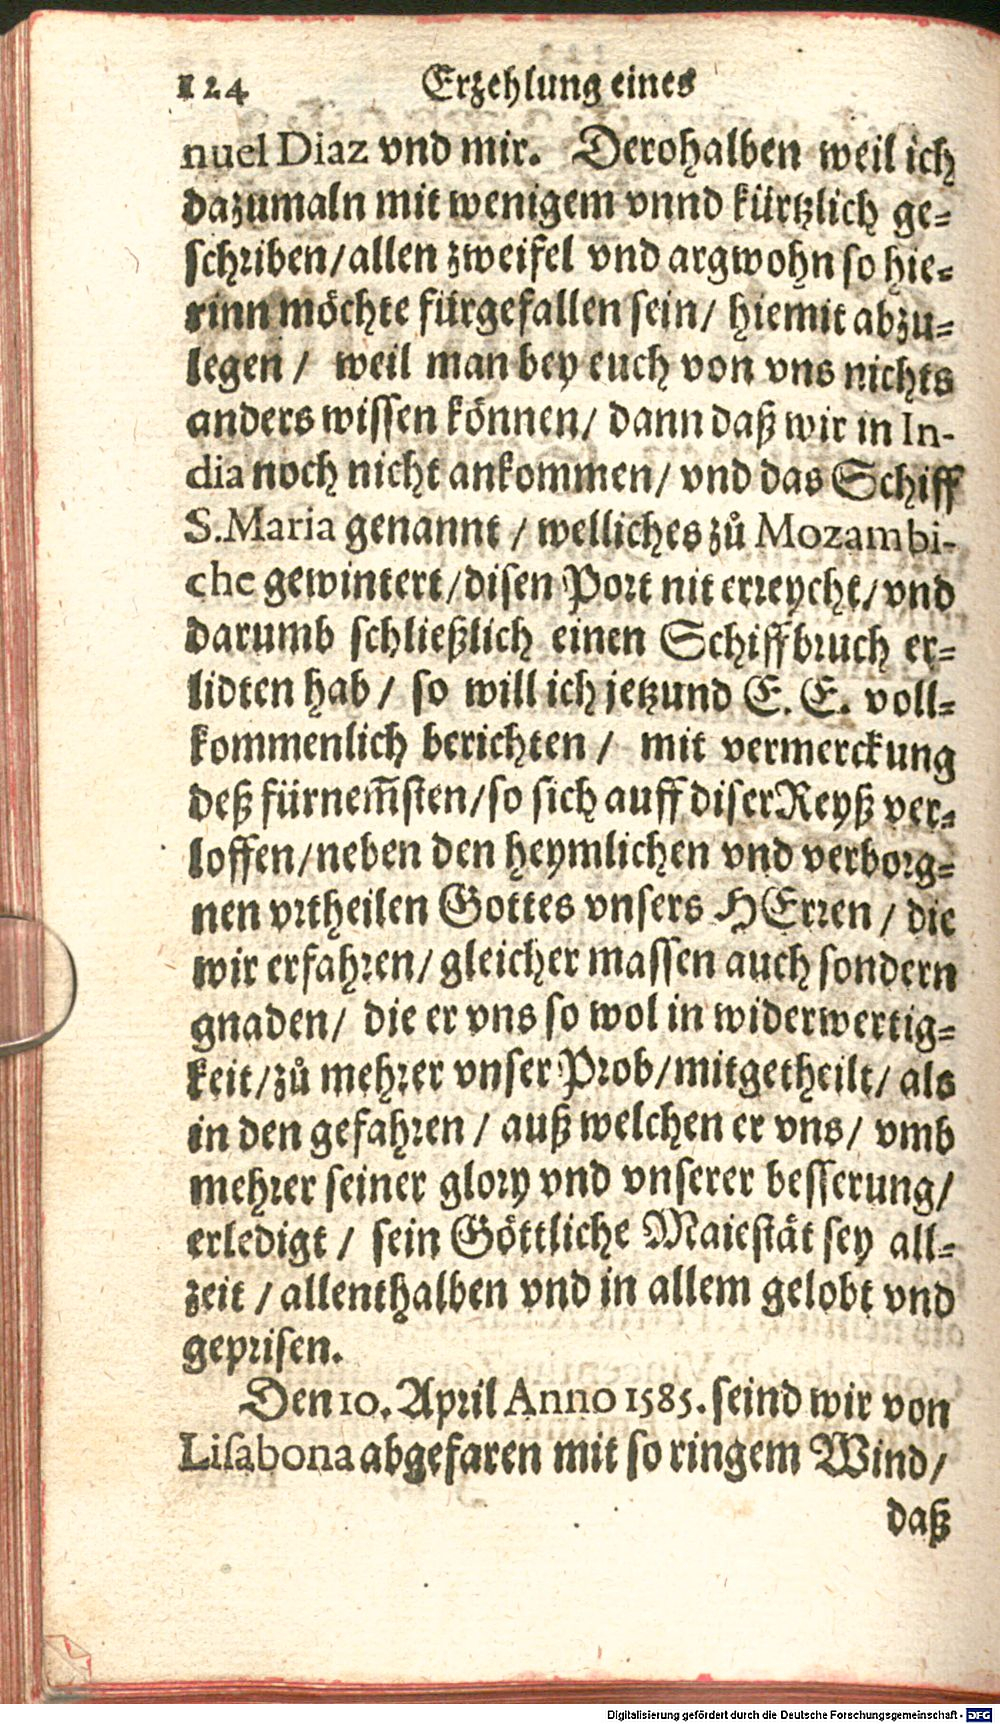 124 Erzehlung eines
nuel Diaz vnd mir. Derohalben weil ich
dazumaln mit wenigem vnnd kürtzlich ge-
schriben/allen zweifel vnd argwohn so hie-
rinn möchte fürgefallen sein/ hiemit abzu-
legen / weil man bey euch von vns nichts
anders wissen können/ dann daß wir in In-
dia noch nicht ankommen/ vnd das Schiff
S. Maria genannt / welliches zů Mozambi-
che gewintert/disen Port nit erreycht/vnd
darumb schließlich einen Schiffbruch er-
lidten hab / so will ich jetzund E. E. voll-
kommenlich berichten / mit vermerckung
deß fürnem̃sten/so sich auff diser Reyß ver-
loffen/neben den heymlichen vnd verborg-
nen vrtheilen Gottes vnsers HErren / die
wir erfahren/ gleicher massen auch sondern
gnaden/ die er vns so wol in widerwertig-
keit/zů mehrer vnser Prob/mitgetheilt/ als
in den gefahren / auß welchen er vns/ vmb
mehrer seiner glory vnd vnserer besserung/
erledigt / sein Göttliche Maiestät sey all-
zeit / allenthalben vnd in allem gelobt vnd
geprisen.
Den 10. April Anno 1585. seind wir von
Lisabona abgefaren mit so ringem Wind/
daß
Digitalisierung gefördert durch die Deutsche Forschungsgemeinschaft - DFG